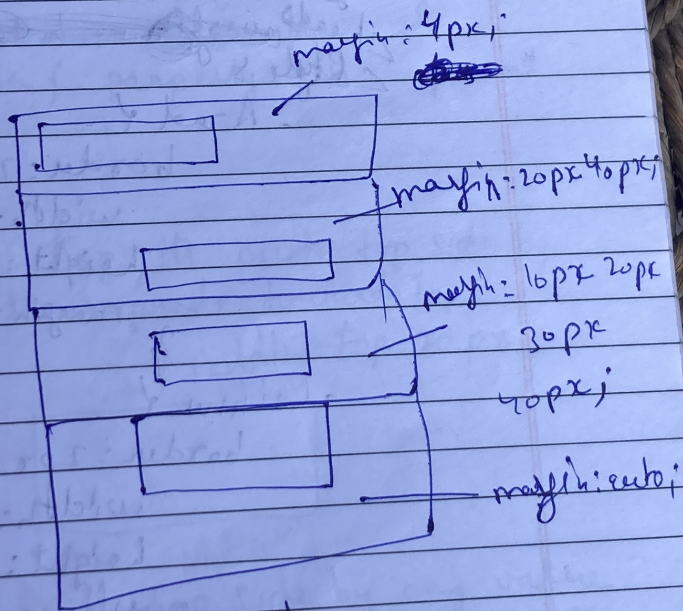 margin: 4px;
margin: 20px 40px;
margin: 10px 20px
30px
40px;
margin: auto;